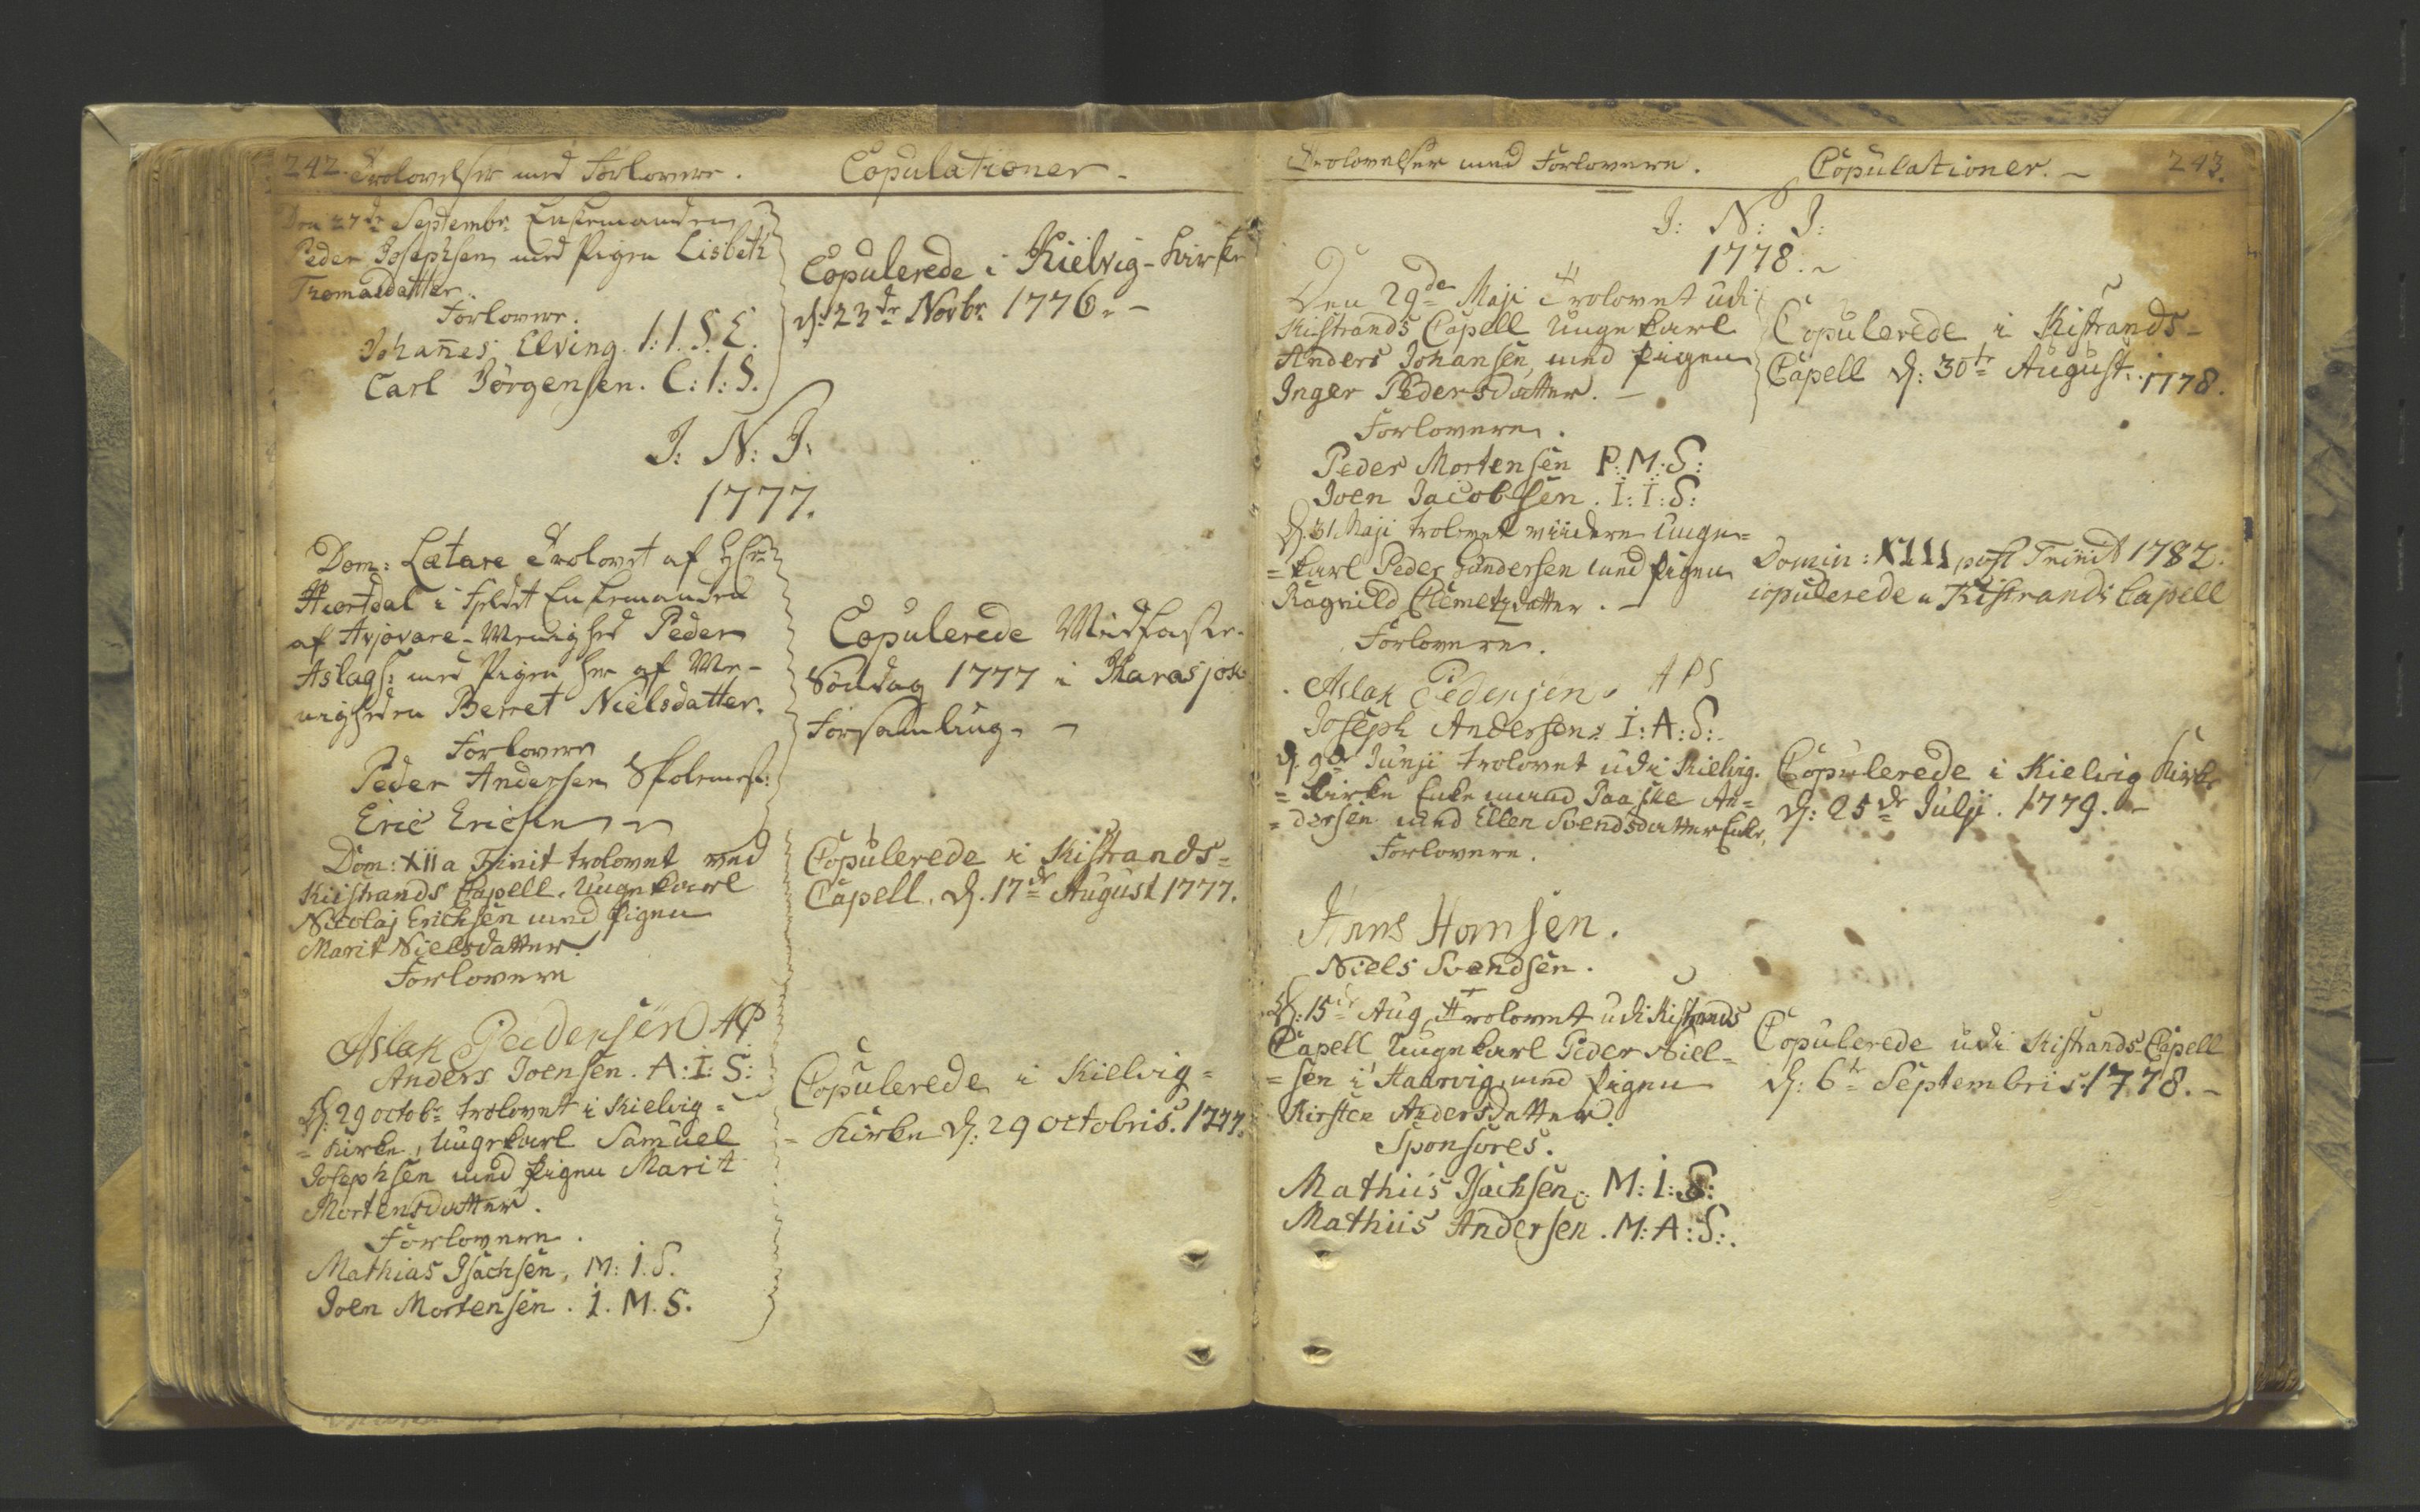 242. Trolovelser med Forlovere. Copulationer.
Den 27de Septembr. Enkemanden
Peder Josephsen med Pigen Lisbeth
Tromasdatter.
Forlovere.
Johañes Elving. I: I. S. E.
Carl Jörgensen. C: I: S.
Copulerede i Kielvig-Kirke
d: 23de Novbr. 1776. -
J: N: J:
1777.
Dom: Lætare Trolovet af Hr
Hiortdal i Feldet Enkemanden
af Avjovare-Menighed Peder
Aslags: med Pigen her af Me-
nigheden Berret Nielsdatter.
Forlovere
Peder Andersen Skolemest:
Eric Ericsen
Copulerede Midfaste-
Söndag 1777 i Karasjok
Forsamling. -
Dom: XII a Trinit trolovet ved
Kiistrands Capell. Ungekarl
Nicolaj Erichsen med Pigen
Marit Nielsdatter.
Forlovere
Aslak Pedersen AP
Anders Joensen. A: I: S:
Copulerede i Kistrands=
Capell. d. 17de August 1777.
D: 29 octobr. trolovet i Kielvig=
=Kirke, Ungekarl Samuel
Josephsen med Pigen Marit
Mortensdatter.
Forlovere.
Mathias Isachsen, M: I: S.
Joen Mortensen. I. M. S.
Copulerede i Kielvig=
=Kirke d: 29 octobris. 1777.
Trolovelser med Forlovere. Copulationer. - 243.
J: N: J:
1778. -
Den 29de Maji Trolovet udi
Kistrands Capell Ungekarl
Anders Johansen, med Pigen
Inger Pedersdatter. -
Forlovere.
Peder Mortensen P: M: S:
Joen Jacobsen. I: I: S:
Copulerede i Kistrands=
Capell d: 30te August. 1778.
D: 31 Maji trolovet Unge=
=karl Peder Gundersen med Pigen
Ragnild Clemetzdatter. -
Forlovere.
Aslak Pedersen. A P S
Joseph Andersen. I: A: S:
Domin: XIII post Trinit 1782.
copulerede i Kistrands Capell
d. 9de Junji trolovet udi Kielvig.
=Kirke Enkemand Paaske An=
=dersen med Ellen Svendsdatter Enke.
Forlovere.
Hans Hansen.
Niels Svendsen.
Copulerede i Kielvig Kirke
d: 25de Julji. 1779. -
D: 15de Aug Trolovet udi Kistrands
Capell Ungekarl Peder Niel=
=sen i Haarvig, med Pigen
Kirsten Andersdatter.
Sponsores.
Mathiis Isachsen. M: I: S:
Mathiis Andersen. M: A: S:.
Copulerede udi Kistrands-Capell
d: 6te Septembriis: 1778. -